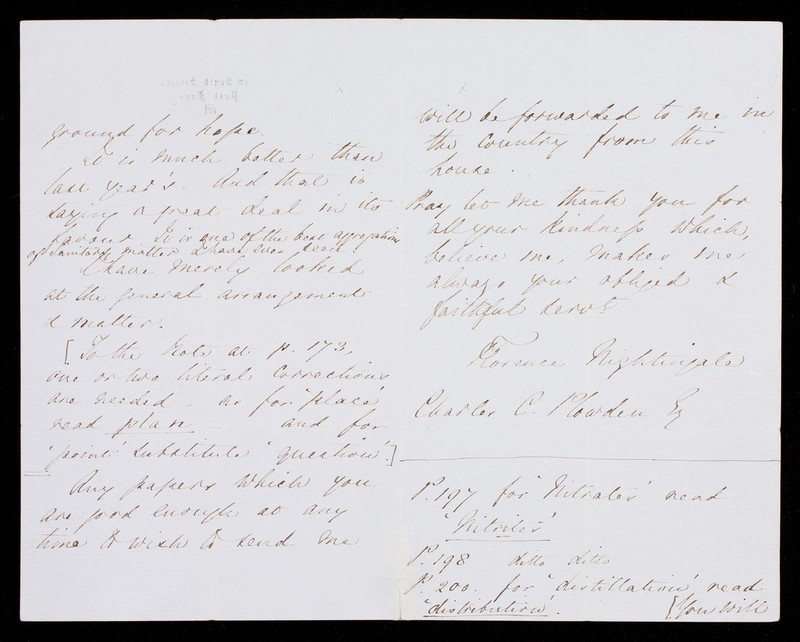 ground for hope.
It is much better than
last year's. And that is
saying a great deal in its
favour. It is one of the best aggregations
of sanitary matter I have ever seen
I have merely looked
at the general arrangement
& matter.
[To the Note at p. 173,
one or two literal corrections
are needed - as for "place"
read plan. and for
'point' substitute 'question'.]
Any papers which you
are good enough at any
time to wish to send me
will be forwarded to me in
the country from this
house.
Pray let me thank you for
all your kindness which,
believe me, makes me
always your obliged &
faithful servt
Florence Nightingale
Charles C. Plowden Esq
P. 197 for 'Nitrates' read
'Nitrites'
P. 198 ditto ditto
P. 200. for 'distillation' read
'distribution'. [You will